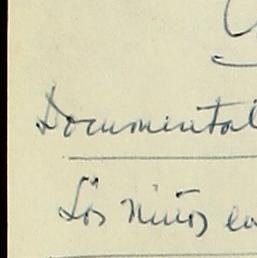 Documental
Los niños en